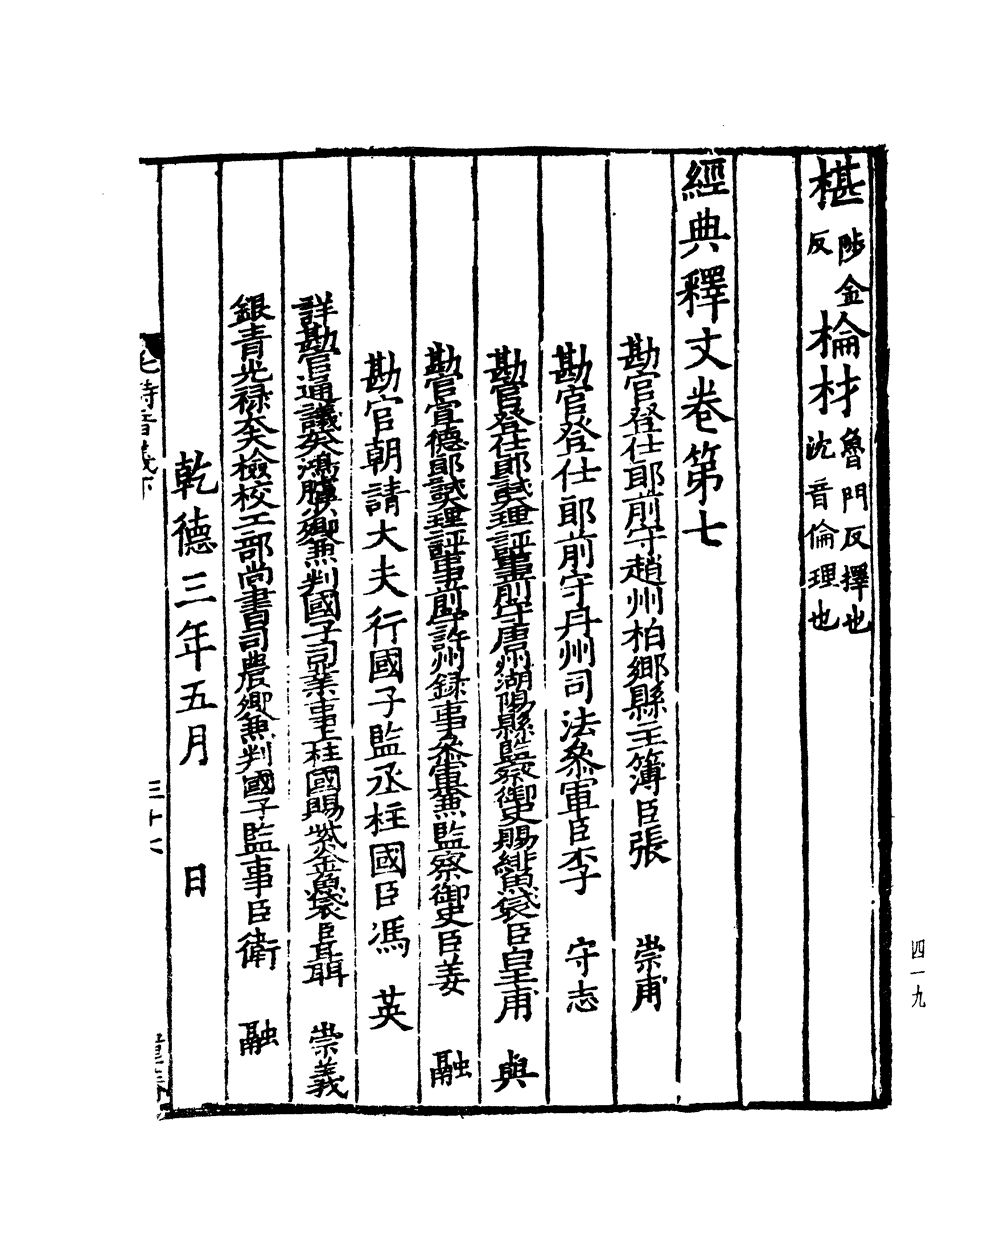 椹陟金反棆材魯門反擇也沈音倫理也
經典釋文卷第七
勘官登仕郎前守趙州柏鄉縣主簿臣張　崇甫
勘官登仕郎前守丹州司法叅軍臣李　守志
勘官登仕郎試大理評事前守唐州湖陽縣監察御史賜緋魚袋臣皇甫　與
勘官宣德郎試大理評事前守許州録事叅軍兼監察御史臣姜　融
勘官朝請大夫行國子監丞柱國臣馮　英
詳勘官通議大夫鴻臚卿兼判國子司業事上柱國賜紫金魚袋臣聶　崇義
銀青光禄大夫檢校工部尚書司農卿兼判國子監事臣衛　融
乾德三年五月　日
毛詩音義下　三十七
四一九